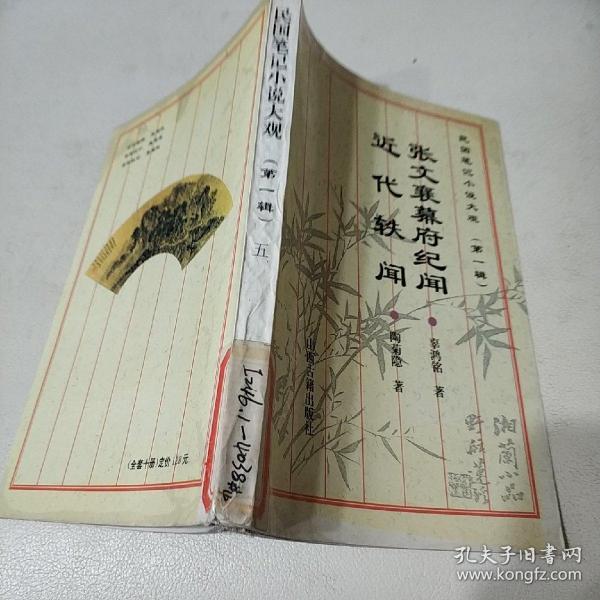 民国笔记小说大观
（第一辑）
五
I246.1-4038#5
民国笔记小说大观（第一辑）
张文襄幕府纪闻
辜鸿铭 著
近代轶闻
陶菊隐 著
山西古籍出版社
湘蘭小品
（全套十册）定价128元
孔夫子旧书网
www.kongfz.com